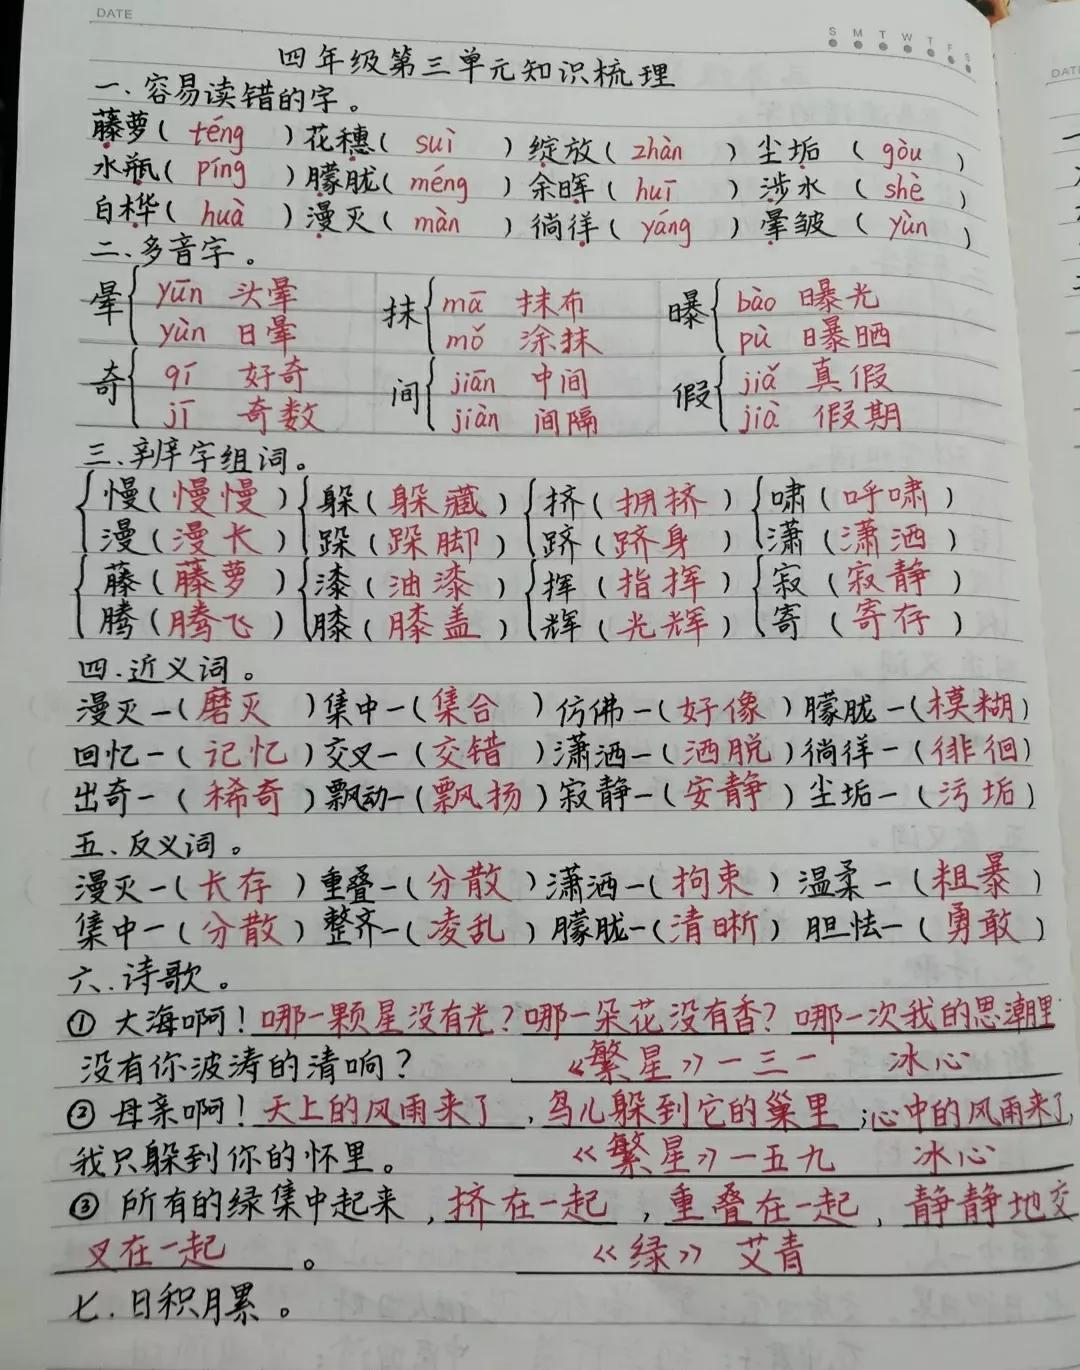 DATE
S M T W T F S
四年级第三单元知识梳理
一、容易读错的字。
藤萝( téng )花穗( suì )绽放( zhàn )尘垢( gòu )
水瓶( píng )朦胧( méng )余晖( huī )涉水( shè )
白桦( huà )漫灭( màn )徜徉( yáng )晕皴( yùn )
二、多音字。
晕{ yūn 头晕 抹{ mā 抹布 曝{ bào 曝光
yùn 日晕 mǒ 涂抹 pù 曝晒
奇{ qí 好奇 间{ jiān 中间 假{ jiǎ 真假
jī 奇数 jiàn 间隔 jià 假期
三、辨字组词。
慢(慢慢) 躲(躲藏) 挤(拥挤) 啸(呼啸)
漫(漫长) 跺(跺脚) 跻(跻身) 潇(潇洒)
藤(藤萝) 漆(油漆) 挥(指挥) 寂(寂静)
腾(腾飞) 膝(膝盖) 辉(光辉) 寄(寄存)
四、近义词。
漫灭-(磨灭)集中-(集合)仿佛-(好像)朦胧-(模糊)
回忆-(记忆)交叉-(交错)潇洒-(洒脱)徜徉-(徘徊)
出奇-(稀奇)飘动-(飘扬)寂静-(安静)尘垢-(污垢)
五、反义词。
漫灭-(长存)重叠-(分散)潇洒-(拘束)温柔-(粗暴)
集中-(分散)整齐-(凌乱)朦胧-(清晰)胆怯-(勇敢)
六、诗歌。
① 大海啊!哪一颗星没有光?哪一朵花没有香?哪一次我的思潮里
没有你波涛的清响? 《繁星》一三一 冰心
② 母亲啊!天上的风雨来了,鸟儿躲到它的巢里;心中的风雨来了,
我只躲到你的怀里。 《繁星》一五九 冰心
③ 所有的绿集中起来,挤在一起,重叠在一起,静静地交
叉在一起。 《绿》 艾青
七、日积月累。